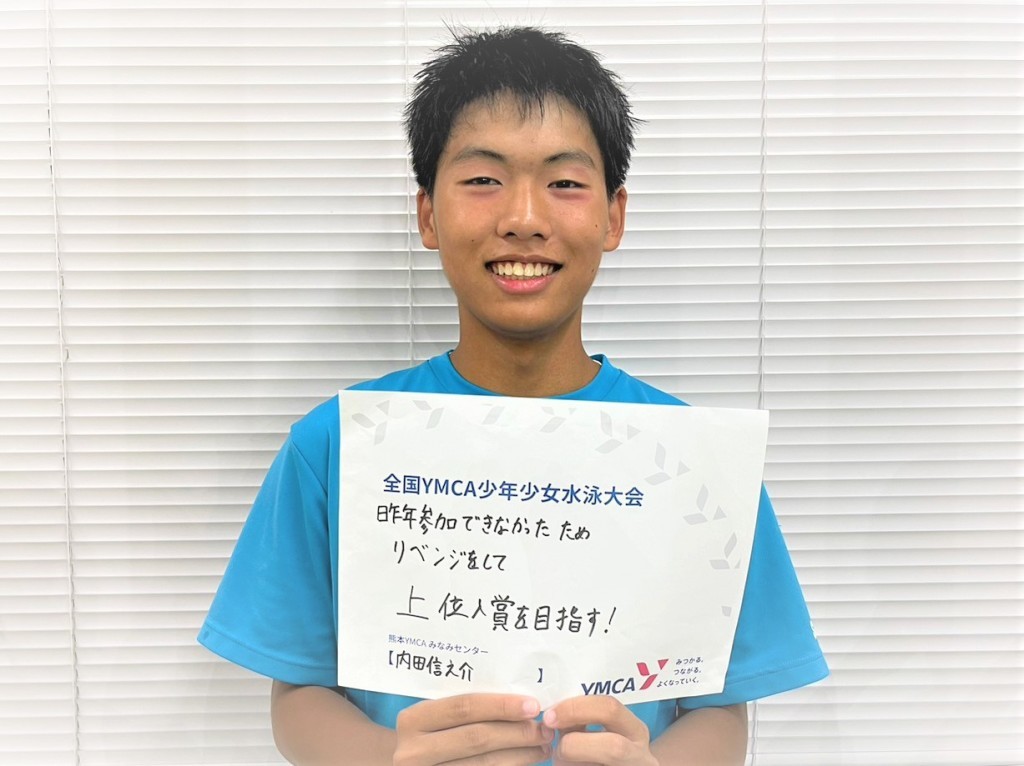 全国YMCA少年少女水泳大会
昨年参加できなかった ため
リベンジをして
上位入賞を目指す!
熊本YMCA みなみセンター
【内田信之介 】
YMCA
みつかる。
つながる。
よくなっていく。